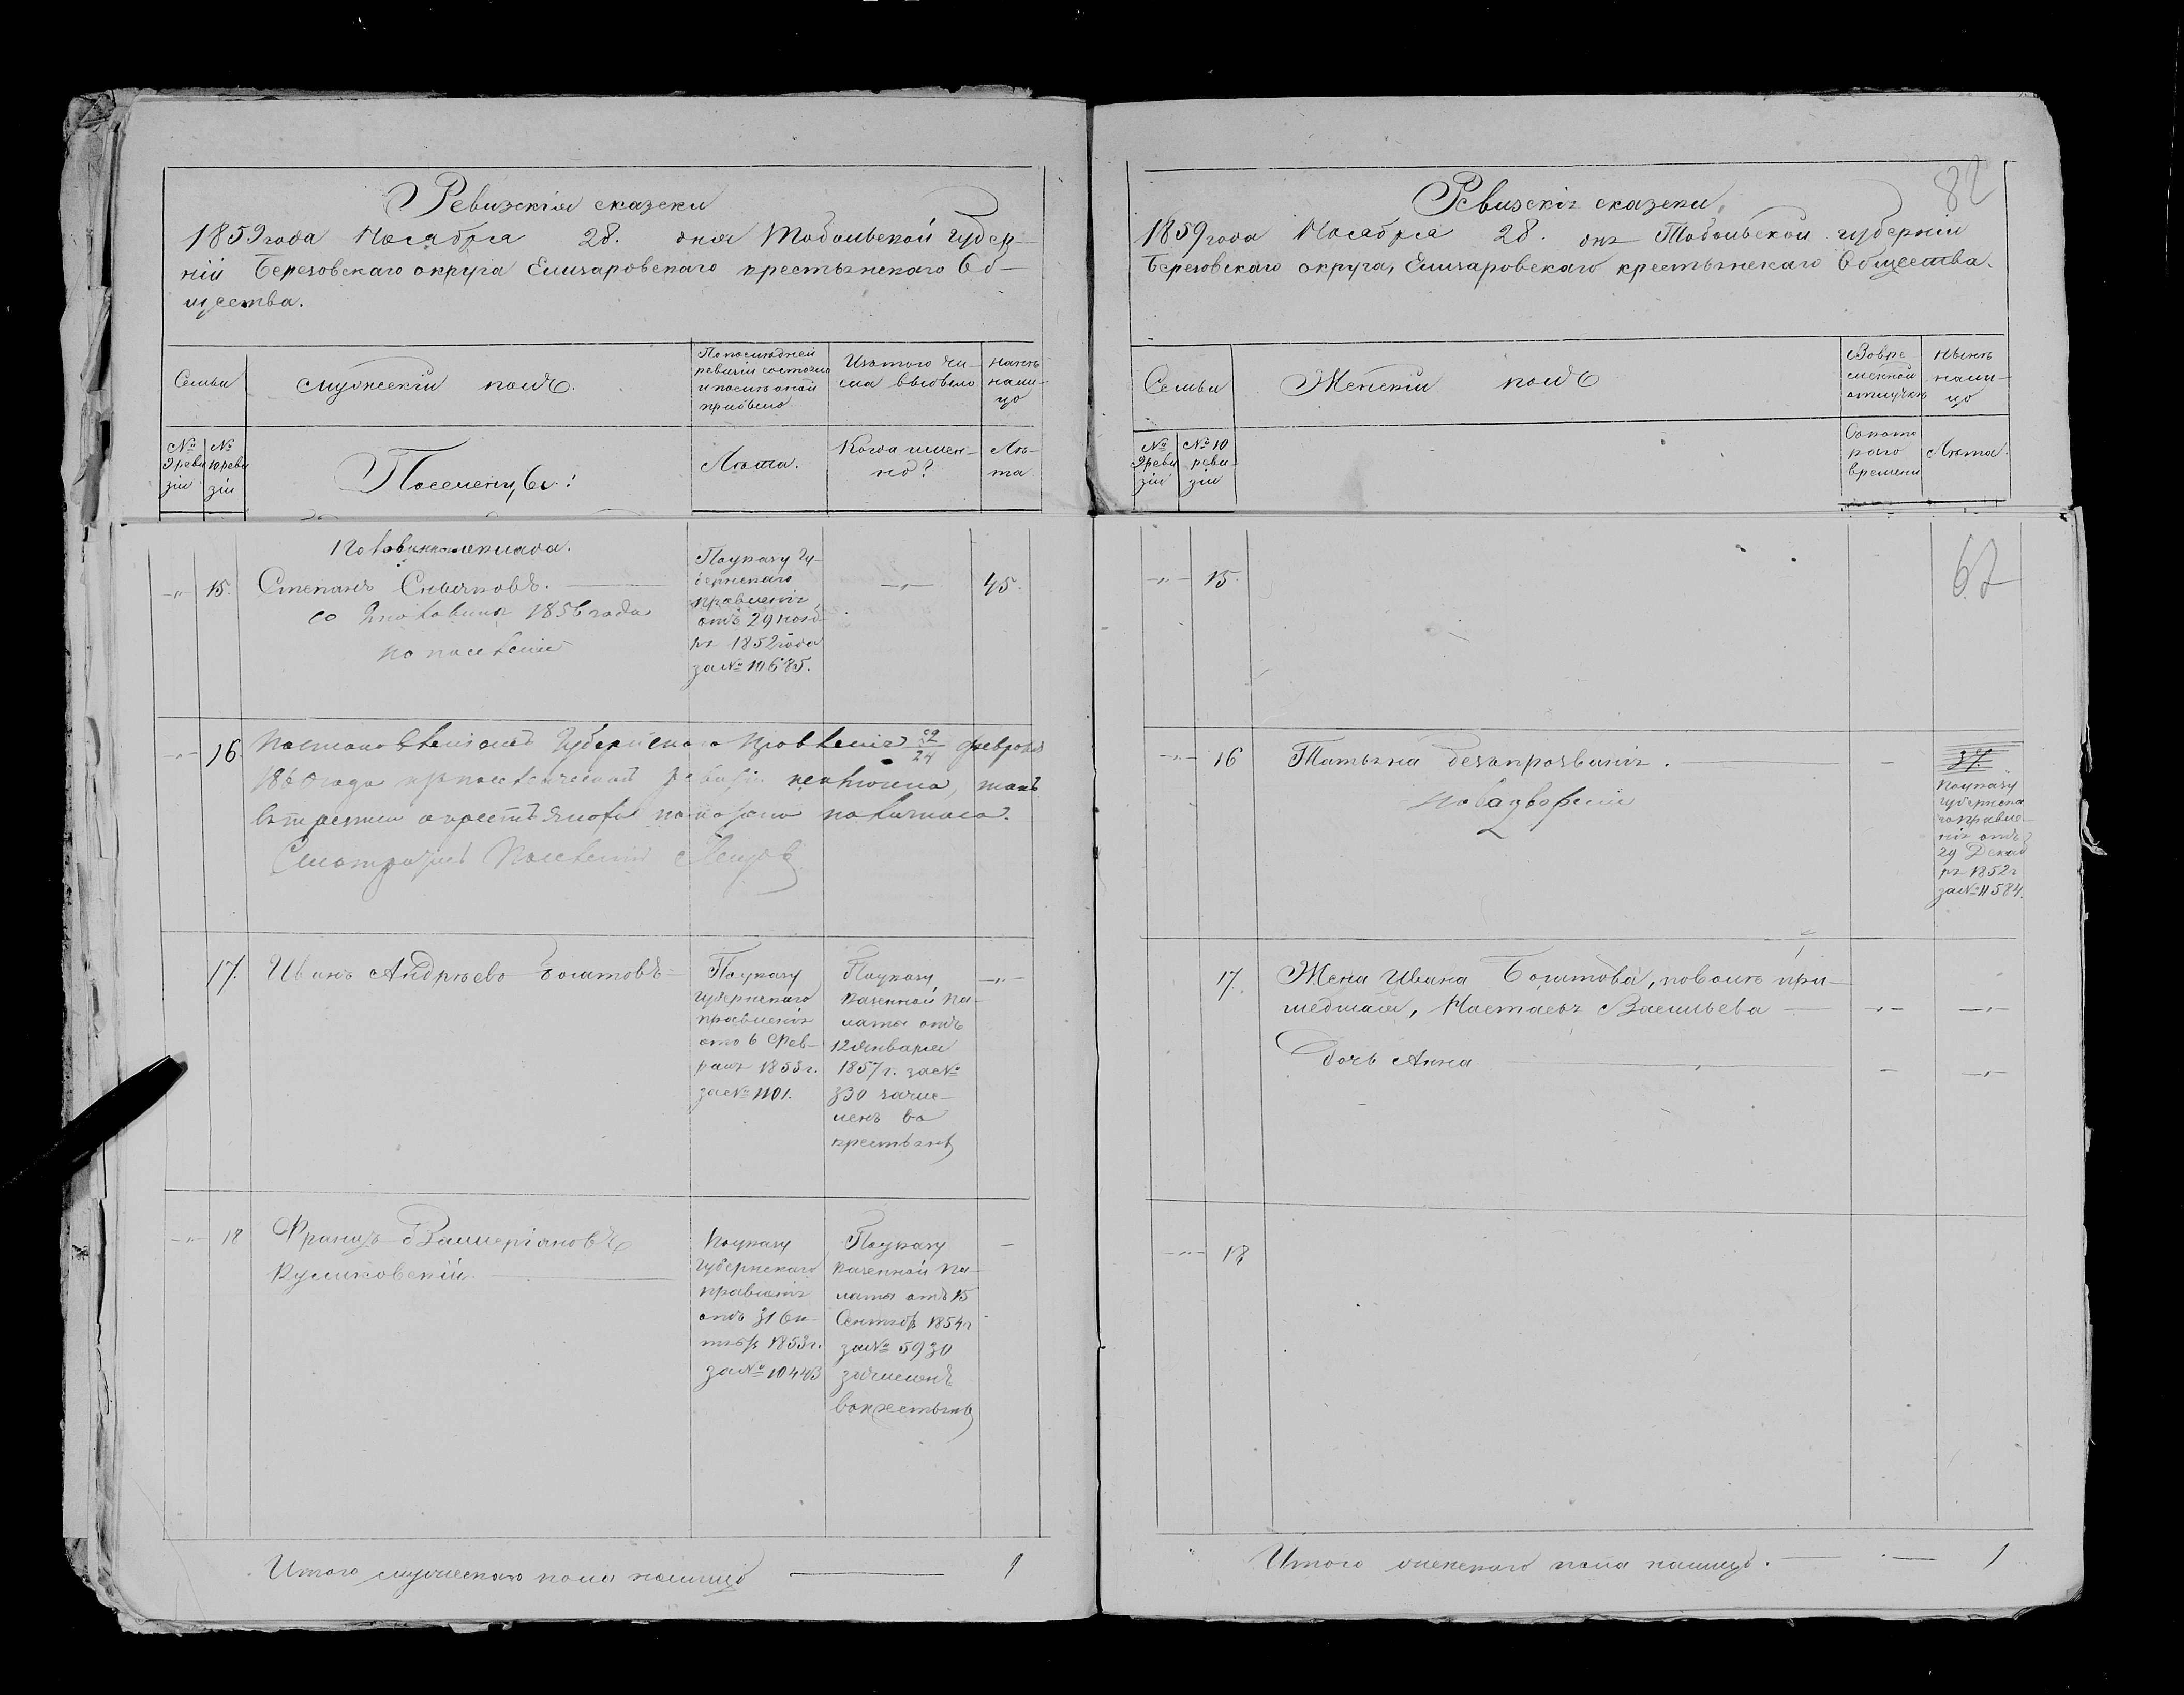 Ревизскія сказски
1859 года Ноября 28. дня Тобольской губер-
ніи Березовскаго округа Елизаровскаго крестьянскаго Об-
щества.
Семьи
Мужескій полъ.
По последней
ревизіи состояло
и после оной
прибыло
Изътого чи-
сла выбыло
Ныне
нали-
цо
№ 9 реви
зіи
№ 10 реви
зіи
Поселенцы:
Лета.
Когда имен-
но?
Ле-
та
15.
Степанъ Смычковъ.
со 2 половины 1856 года
По указу Гу-
бернскаго
правленія
отъ 29 Нояб-
ря 1852 года
за № 10685.
45.
16.
Постановленіемъ Губернскаго Правленія 22/24 февраля
1860 года
Смотритель Поселеній
17.
Иванъ Андреевъ Богатовъ
По указу
губернскаго
правленія
отъ 6 Фев-
раля 1853 г.
за № 1101.
По указу
казенной па-
латы отъ
12 Января
1857 г. за №
330 зачис-
ленъ въ
крестьяне
18
Францъ Валлеріановъ
Куликовскій
По указу
Губернскаго
правленія
отъ 31 Ок-
тября 1853 г.
за № 10443
По указу
казенной па-
латы отъ 15
Сентября 1854 г
за № 5930
зачисленъ
въ крестьяне
Итого мужескаго пола налицо 1
82
Ревизскія сказски
1859 года Ноября 28. дня Тобольской губерніи
Березовскаго округа, Елизаровскаго крестьянскаго Общества.
Семьи
Женскій полъ
Во вре
менной
отлучке
Ныне
нали-
цо
№ 9 реви
зіи
№ 10
реви-
зіи
Съ кото
раго
времени
Лета.
15.
62
16
Татьяна безъ прозванія.
37.
По указу
губернска
го правле-
нія отъ
29 Декаб
ря 1852 г
за № 11584.
17.
Жена Ивана Богатова, по воле при-
шедшая, Настасья Васильева
Дочь Анна
18
Итого женскаго пола налицо. 1